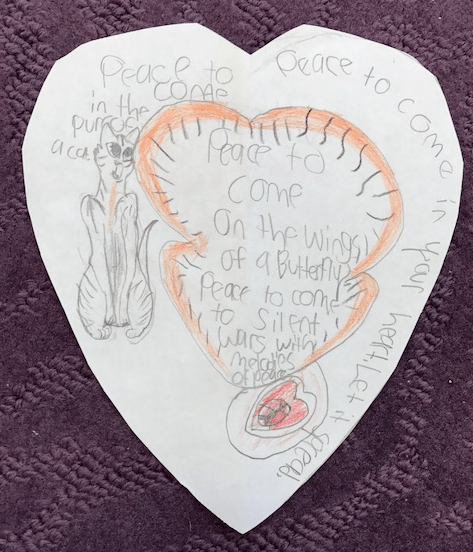 Peace to
come
in the
purr of
a cat.
Peace to come in your heart Let it spread
Peace to
come
On the wings
of a Butterfly
Peace to come
to silent
wars with
melodies
of peace